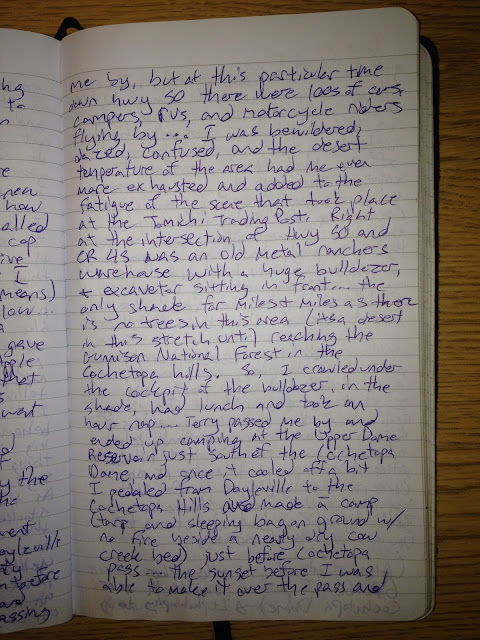 ng
to
n
e
nen
how
alled
cop
ive
I
means)
low...
a
gave
pple
that
s
went
y the
vent
oyleville
ty
n before
and
assing
me by, but at this particular time
down Hwy 50 there were 100s of cars,
campers, RVs, and motorcycle riders
flying by... I was bewildered,
dazed, confused, and the desert
temperature of the area had me even
more exhausted and added to the
fatigue of the scene that took place
at the Tomichi Trading Post. Right
at the intersection of Hwy 50 and
CR 45 was an old metal ranchers
warehouse with a huge bulldozer,
+ excavator sitting in front... the
only shade for miles + miles as there
is no trees in this area (its a desert
in this stretch until reaching the
Gunnison National Forest in the
Cochetopa hills. So, I crawled under
the cockpit of the bulldozer, in the
shade, had lunch and took an
hour nap... Terry passed me by and
ended up camping at the Upper Dome
Reservoir just South of the Cochetopa
Dome, and once it cooled off a bit
I pedaled from Doyleville to the
Cochetopa Hills and made a camp
(tarp and sleeping bag on ground w/
no fire beside a nearly dry cow
creek bed) just before Cochetopa
pass... the sunset before I was
able to make it over the pass and